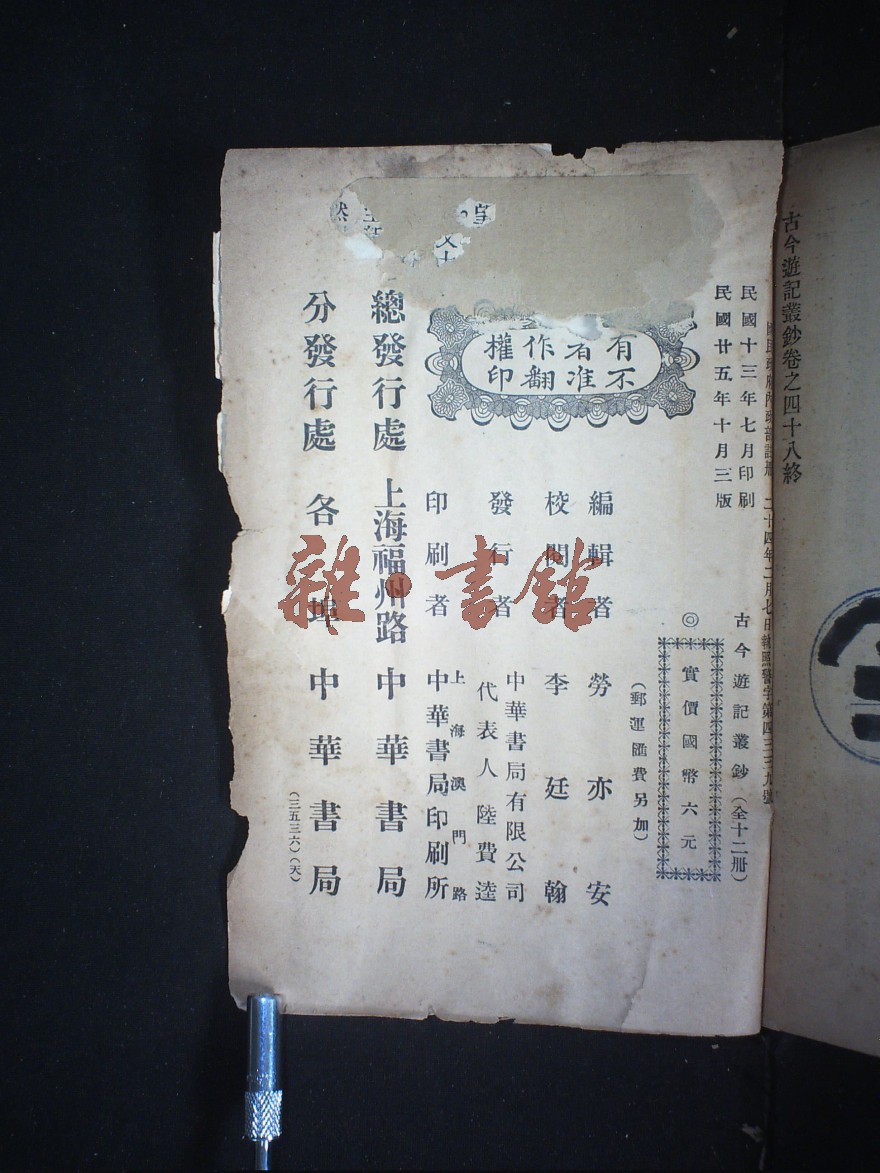 古今遊記叢鈔卷之四十八終
二十四年二月七日執照警字第四三三九號
民國十三年七月印刷
民國廿五年十月三版
古今遊記叢鈔(全十二冊)
◎
實價國幣六元
(郵運匯費另加)
有著作權
不准翻印
編輯者 勞亦安
校閱者 李廷翰
發行者 中華書局有限公司
代表人陸費逵
印刷者 上海澳門路
中華書局印刷所
總發行處 上海福州路 中華書局
分發行處 各埠 中華書局
(三五三六)(天)
雜·書館